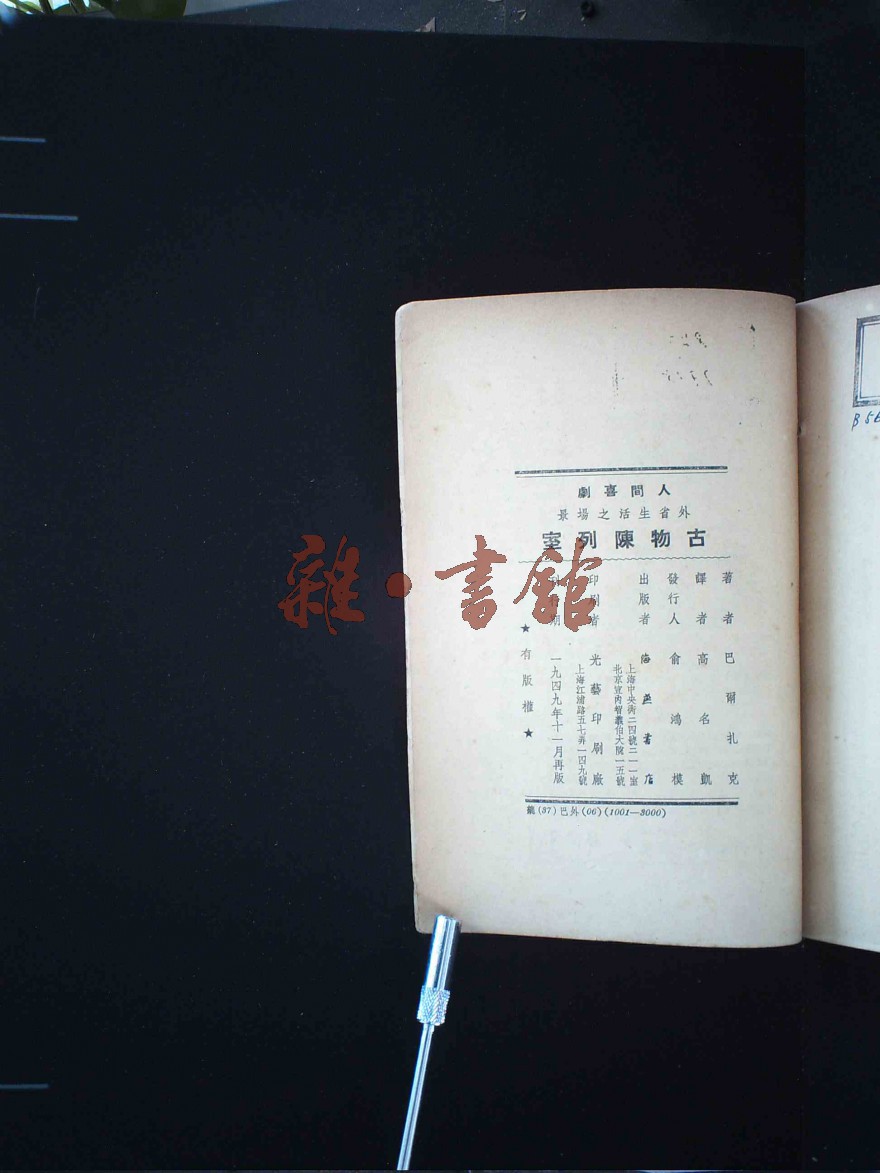 人間喜劇
外省生活之場景
古物陳列室
著者 巴爾扎克
譯者 高名凱
發行人 俞鴻模
出版者 海燕書店
上海中央街二四號二一一室
北京宣內智義伯大院一五號
印刷者 光藝印刷廠
上海江浦路五七弄一四九號
一九四九年十一月再版
★有版權★
龍(37)巴外(06)(1001—3000)
雜·書館
B 56